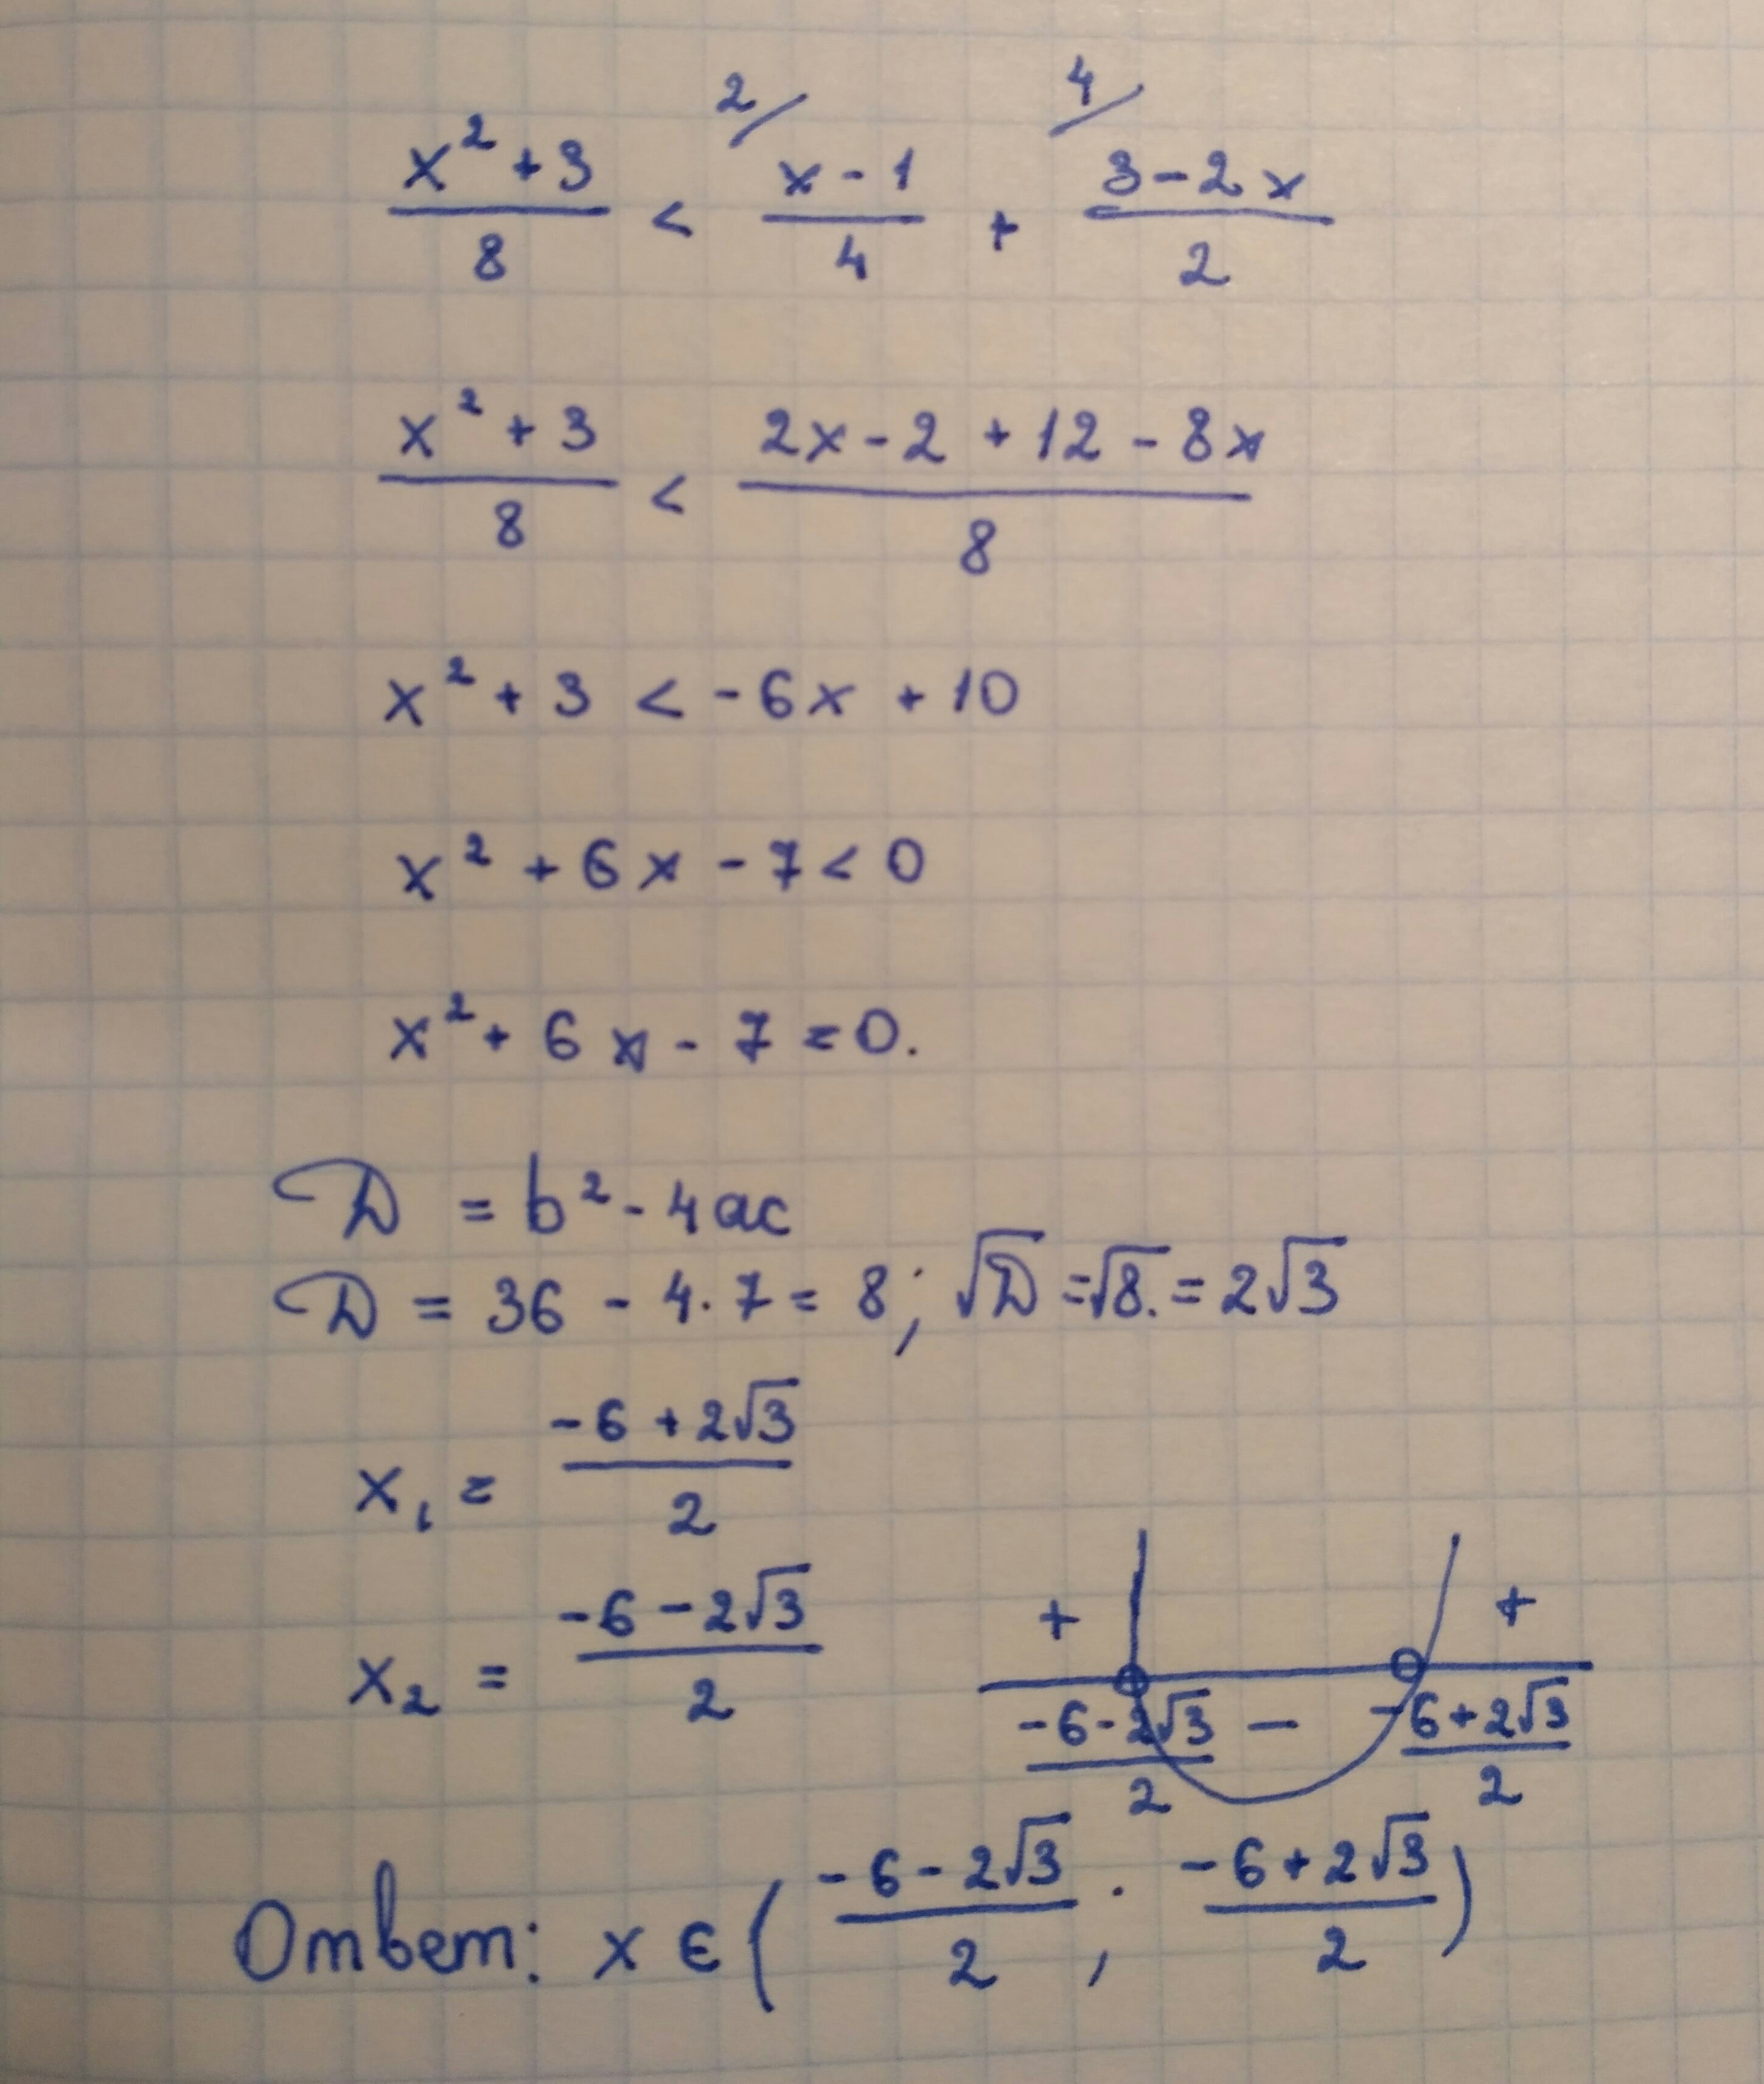 2/ 4/
(x² + 3)/8 < (x - 1)/4 + (3 - 2x)/2
(x² + 3)/8 < (2x - 2 + 12 - 8x)/8
x² + 3 < -6x + 10
x² + 6x - 7 < 0
x² + 6x - 7 = 0.
D = b² - 4ac
D = 36 - 4·7 = 8; √D = √8. = 2√3
x₁ = (-6 + 2√3)/2
x₂ = (-6 - 2√3)/2
+ +
(-6 - 2√3)/2 - (-6 + 2√3)/2
Ответ: x ∈ ((-6 - 2√3)/2 ; (-6 + 2√3)/2)